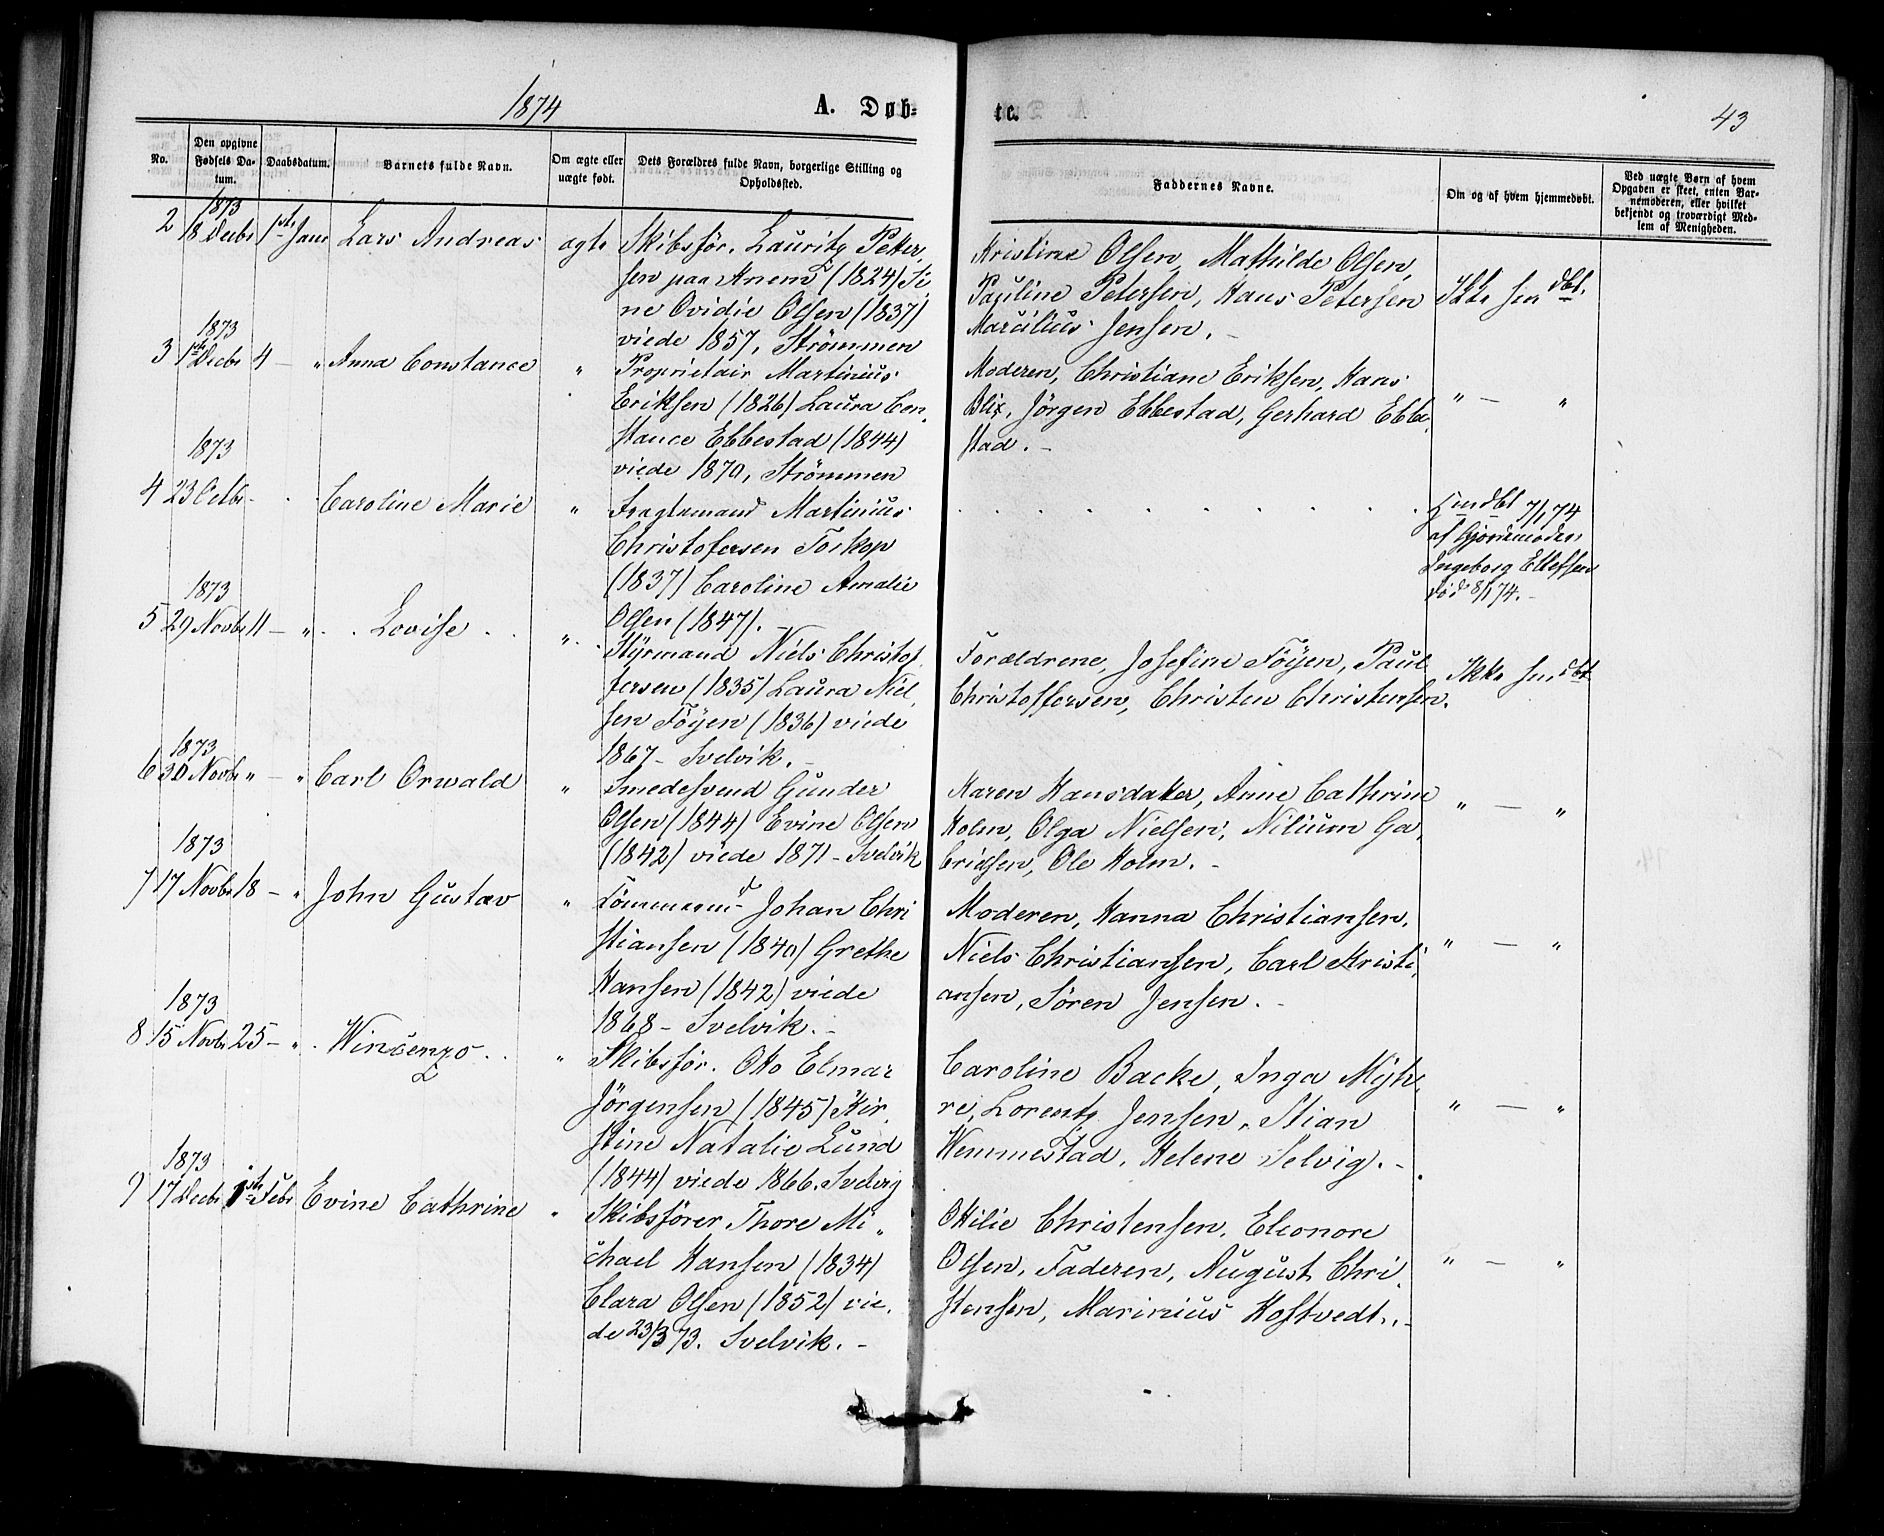 1874
A. Døb-
te.
43
No.
Den opgivne Fødsels Datum.
Daabsdatum.
Barnets fulde Navn.
Om ægte eller uægte født.
Dets Forældres fulde Navn, borgerlige Stilling og Opholdssted.
Faddernes Navne.
Om og af hvem hjemmedøbt.
Ved uægte Børn af hvem Opgaven er skeet, enten Barnemoderen, eller hvilket bekjendt og troværdigt Medlem af Menigheden.
1873
2 18 Decbr 1ste Janr Lars Andreas ægte Skibsför. Lauritz Peter-
sen paa Anem (1824) Si
ne Ovidie Olsen (1837)
viede 1857, Strömmen
Kristine Olsen, Mathilde Olsen,
Pauline Petersen, Hans Petersen
Marcilius Jensen. -
Ikke hmdbt.
1873
3 1ste Decbr 4 - " Anna Constance " Proprietair Martinius
Eriksen (1826) Laura Con-
stance Ebbestad (1844)
viede 1870, Strömmen
Moderen, Christiane Eriksen, Hans
Blix, Jörgen Ebbestad, Gerhard Ebbe-
stad. -
" - "
1873
4 23 Octbr - Caroline Marie " Fragtemand Martinius
Christofersen Torkop
(1837) Caroline Amalie
Olsen (1847). -
Hmdbt 7/1 74
af Gjordemoder
Ingeborg Ellefsen
död 8/1 74. -
1873
5 29 Novbr 11 - " Lovise " Styrmand Niels Christof-
fersen (1835) Laura Niel-
sen Föyen (1836) viede
1867 - Svelvik. -
Forældrene, Josefine Föyen, Paul
Christoffersen, Christen Christensen.
Ikke hmdbt
1873
6 30 Novbr " - " Carl Orwald " Smedesvend Gunder
Olsen (1844) Evine Olsen
(1842) viede 1871 - Svelvik
Karen Hansdatter, Anne Cathrine
Holm, Olga Nielsen, Nilium Ga-
brielsen, Ole Holm. -
" - "
1873
7 17 Novbr 18 - " John Gustav " Tömmermd Johan Chri
stiansen (1840) Grethe
Hansen (1842) viede
1868 - Svelvik. -
Moderen, Hanna Christiansen,
Niels Christiansen, Carl Kristi-
ansen, Sören Jensen. -
" - "
1873
8 15 Novbr 25 - " Wincenzo " Skibsför. Otto Elmar
Jörgensen (1845) Kir-
stine Natalie Lund
(1844) viede 1866. Svelvig
Caroline Backe, Inga Myh-
re, Lorentz Jensen, Stian
Wemmestad, Helene Selvig. -
" - "
1873
9 17 Decbr 1ste Febr Evine Cathrine " Skibsförer Thore Mi-
chael Hansen (1834)
Clara Olsen (1852) vie-
de 23/3 73. Svelvik. -
Otilie Christensen, Eleonore
Olsen, Faderen, August Chri-
stensen, Marinius Hoftvedt. -
" - "